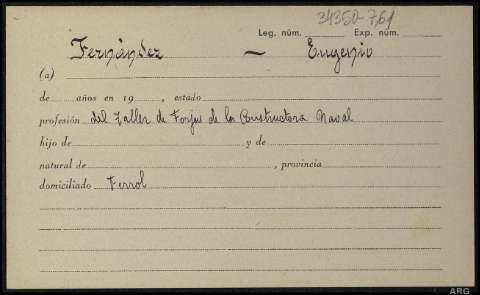 34350-761
Leg. núm. Exp. núm.
Fernández — Eugenio
(a)
de años en 19 , estado
profesión del Taller de Forjas de la Constructora Naval
hijo de y de
natural de , provincia
domiciliado Ferrol
ARG